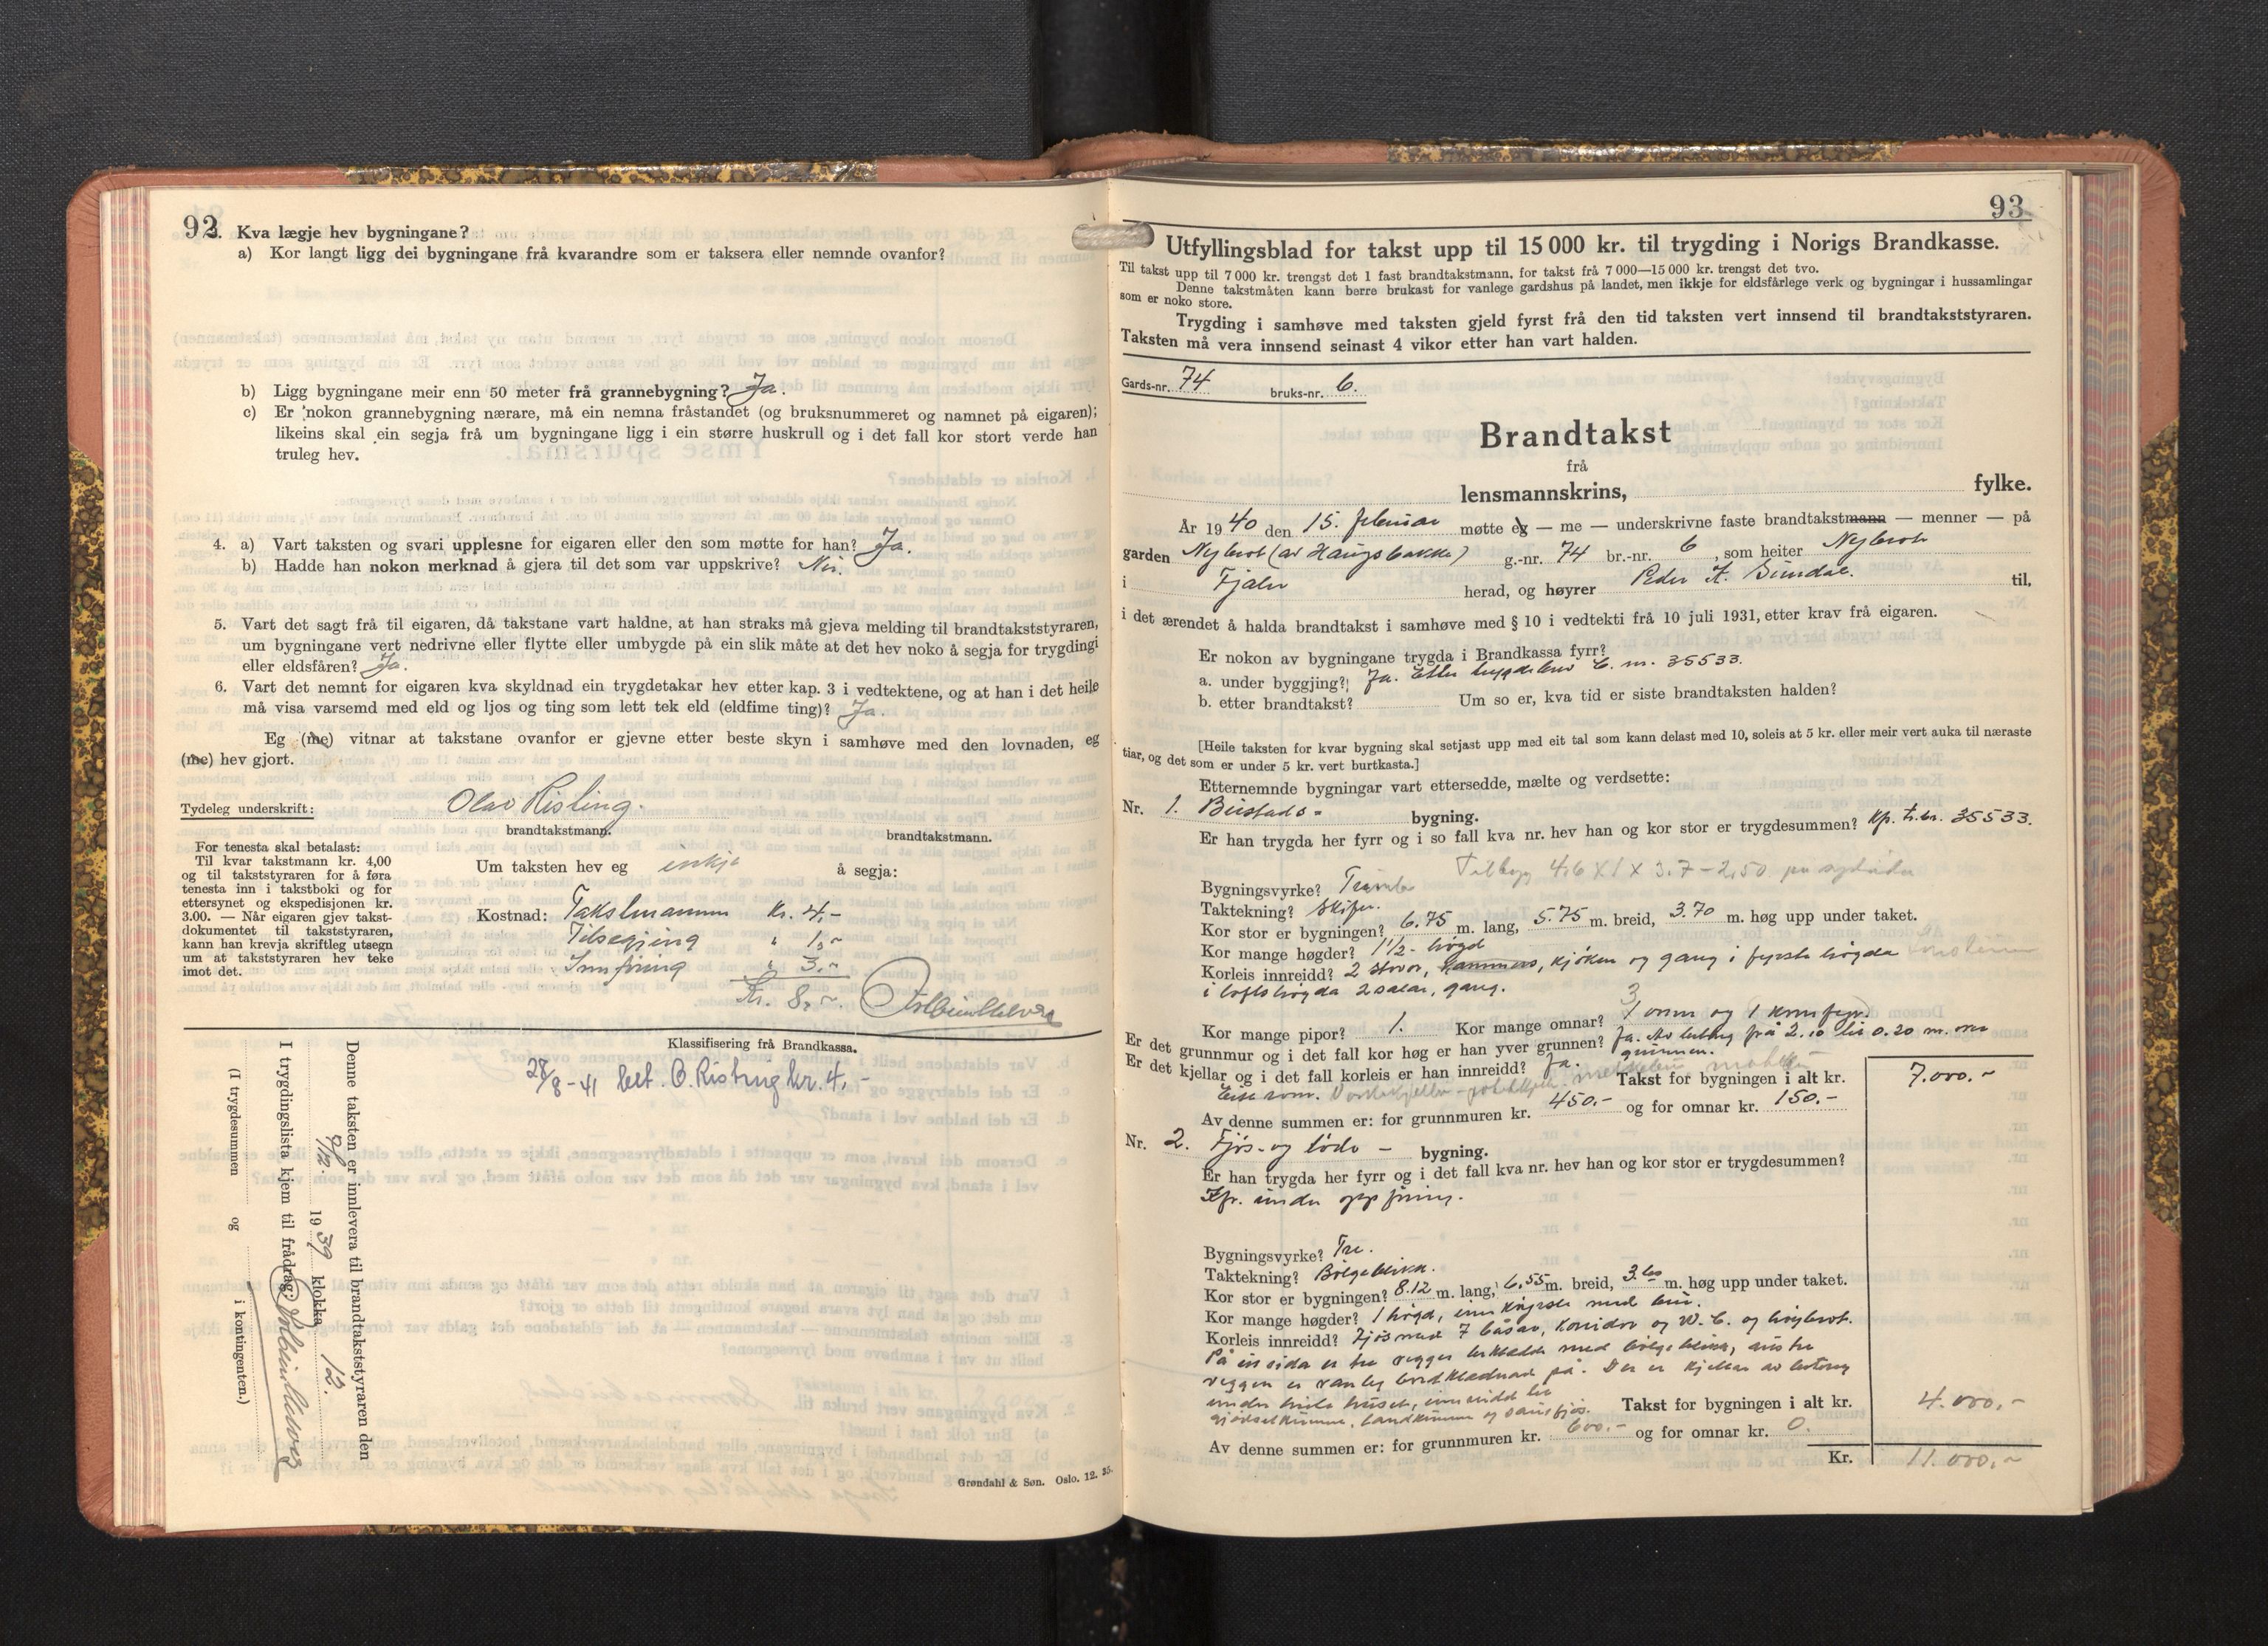 92
3. Kva lægje hev bygningane?
a) Kor langt ligg dei bygningane frå kvarandre som er taksera eller nemnde ovanfor?
b) Ligg bygningane meir enn 50 meter frå grannebygning? Ja.
c) Er nokon grannebygning nærare, må ein nemna fråstandet (og bruksnummeret og namnet på eigaren);
likeins skal ein segja frå um bygningane ligg i ein større huskrull og i det fall kor stort verde han
truleg hev.
4. a) Vart taksten og svari upplesne for eigaren eller den som møtte for han? Ja.
b) Hadde han nokon merknad å gjera til det som var uppskrive? Nei.
5. Vart det sagt frå til eigaren, då takstane vart haldne, at han straks må gjeva melding til brandtakststyraren,
um bygningane vert nedrivne eller flytte eller umbygde på ein slik måte at det hev noko å segja for trygdingi
eller eldsfåren? Ja.
6. Vart det nemnt for eigaren kva skyldnad ein trygdetakar hev etter kap. 3 i vedtektene, og at han i det heile
må visa varsemd med eld og ljos og ting som lett tek eld (eldfime ting)? Ja.
Eg (me) vitnar at takstane ovanfor er gjevne etter beste skyn i samhøve med den lovnaden, eg
(me) hev gjort.
Tydeleg underskrift: Olav Risting.
brandtakstmann. brandtakstmann.
For tenesta skal betalast:
Til kvar takstmann kr. 4,00
og til takststyraren for å føra
tenesta inn i takstboki og for
ettersynet og ekspedisjonen kr.
3.00. — Når eigaren gjev takst-
dokumentet til takststyraren,
kann han krevja skriftleg utsegn
um at takststyraren hev teke
imot det.
Um taksten hev eg inkje å segja:
Kostnad: Takstmannen Kr. 4,-
Tilsegjing " 1,-
Innføring " 3.-
Kr. 8,-
Klassifisering frå Brandkassa.
28/8-41 bet. O. Risting kr. 4,-
Denne taksten er innlevera til brandtakststyraren den
9/12. 1939 klokka 12.
I trygdingslista kjem til frådrag:
(I trygdesummen og i kontingenten.)
Grøndahl & Søn. Oslo. 12. 35.
93
Utfyllingsblad for takst upp til 15 000 kr. til trygding i Norigs Brandkasse.
Til takst upp til 7 000 kr. trengst det 1 fast brandtakstmann, for takst frå 7 000—15 000 kr. trengst det tvo.
Denne takstmåten kann berre brukast for vanlege gardshus på landet, men ikkje for eldsfårlege verk og bygningar i hussamlingar
som er noko store.
Trygding i samhøve med taksten gjeld fyrst frå den tid taksten vert innsend til brandtakststyraren.
Taksten må vera innsend seinast 4 vikor etter han vart halden.
Gards-nr. 74 bruks-nr. 6.
Brandtakst
frå
lensmannskrins, fylke.
År 1940 den 15. februar møtte eg — me — underskrivne faste brandtakstmann — menner — på
garden Nybrot (av Haugsbakke) g.-nr. 74 br.-nr. 6, som heiter Nybrot
i Fjaler herad, og høyrer Peder A. Sundal. til,
i det ærendet å halda brandtakst i samhøve med § 10 i vedtekti frå 10 juli 1931, etter krav frå eigaren.
Er nokon av bygningane trygda i Brandkassa fyrr?
a. under byggjing? Ja. Etter trygdebrev nr. 35533.
b. etter brandtakst? Um so er, kva tid er siste brandtaksten halden?
[Heile taksten for kvar bygning skal setjast upp med eit tal som kann delast med 10, soleis at 5 kr. eller meir vert auka til næraste
tiar, og det som er under 5 kr. vert burtkasta.]
Etternemnde bygningar vart ettersedde, mælte og verdsette:
Nr. 1. Bustads- bygning.
Er han trygda her fyrr og i so fall kva nr. hev han og kor stor er trygdesummen? Kp. t.br. 35533.
Tilbygg 4,6 X 1 X 3,7 - 2,50 på sydsida
Bygningsvyrke?
Taktekning? Skifer.
Kor stor er bygningen? 6.75 m. lang, 5.75 m. breid, 3.70 m. høg upp under taket.
Kor mange høgder? 1 1/2- høgd
Korleis innreidd? 2 stovor, kammers, kjøken og gang i fyrste høgda
i loftshøgda 2 salar, gang.
Kor mange pipor? 1. Kor mange omnar? 3 1 omn og 1 komfyr.
Er det grunnmur og i det fall kor høg er han yver grunnen? Ja. Av betong frå 2.10 til 0.20 m. over
grunnen.
Er det kjellar og i det fall korleis er han innreidd? Ja.
Eitt rom. Vaskekjellar - potetkjell.
Takst for bygningen i alt kr. 7.000.-
Av denne summen er: for grunnmuren kr. 450.- og for omnar kr. 150.-
Nr. 2. Fjøs- og løde - bygning.
Er han trygda her fyrr og i det fall kva nr. hev han og kor stor er trygdesummen?
Kfr. under oppføring.
Bygningsvyrke? Tre.
Taktekning? Bølgeblikk.
Kor stor er bygningen? 8.12 m. lang, 6,55 m. breid, 3.60 m. høg upp under taket.
Kor mange høgder? 1 høgd, innkøyrsle med bru.
Korleis innreidd? Fjøs med 7 båsar, koridor og W. C. og høybrot.
På ei sida er tre vegger bekledde med bølgeblikk, austre
veggen er vanleg bordklednad på. Der er kjellar av betong
under heile huset, innreidd til
gjødselkumme, landkumme og sauefjøs.
Takst for bygningen i alt kr. 4.000,-
Av denne summen er: for grunnmuren kr. 600.- og for omnar kr. 0.
Kr. 11.000,-